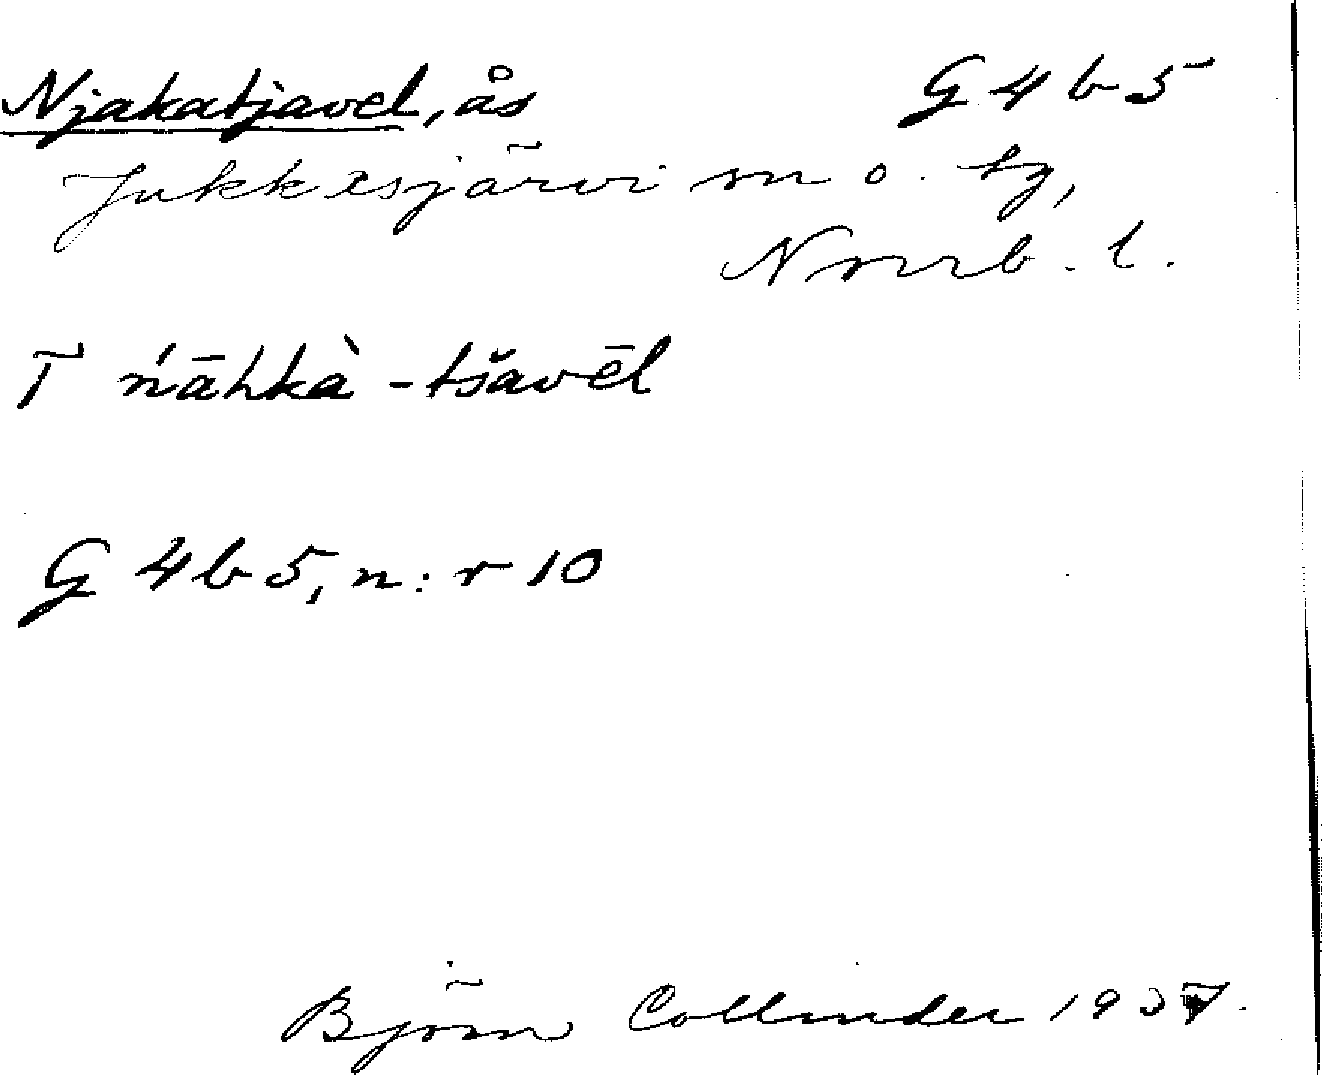 Njakatjavel, ås G 4 b 5
Jukkasjärvi sn o. tg,
Norrb. l.
T ńāhkà -tšavēl
G 4 b 5, n:r 10
Björn Collinder 1937.